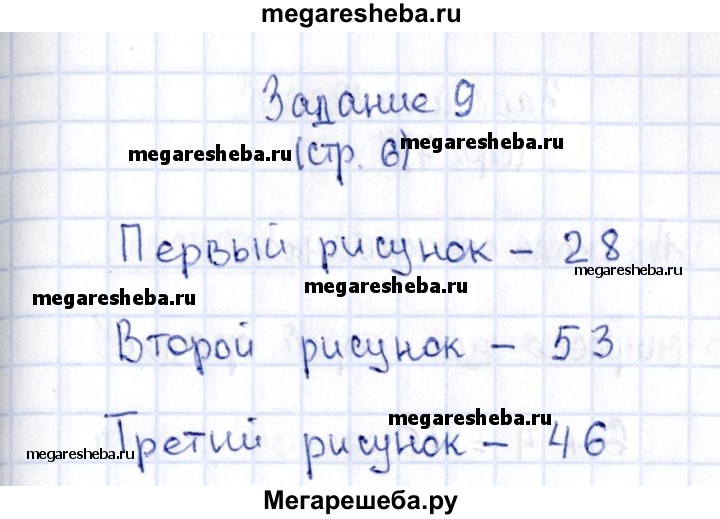 megaresheba.ru
Задание 9
megaresheba.ru
(стр. 6)
megaresheba.ru
Первый рисунок – 28
megaresheba.ru
megaresheba.ru
megaresheba.ru
Второй рисунок – 53
megaresheba.ru
Третий рисунок – 46
megaresheba.ru
Мегарешеба.ру